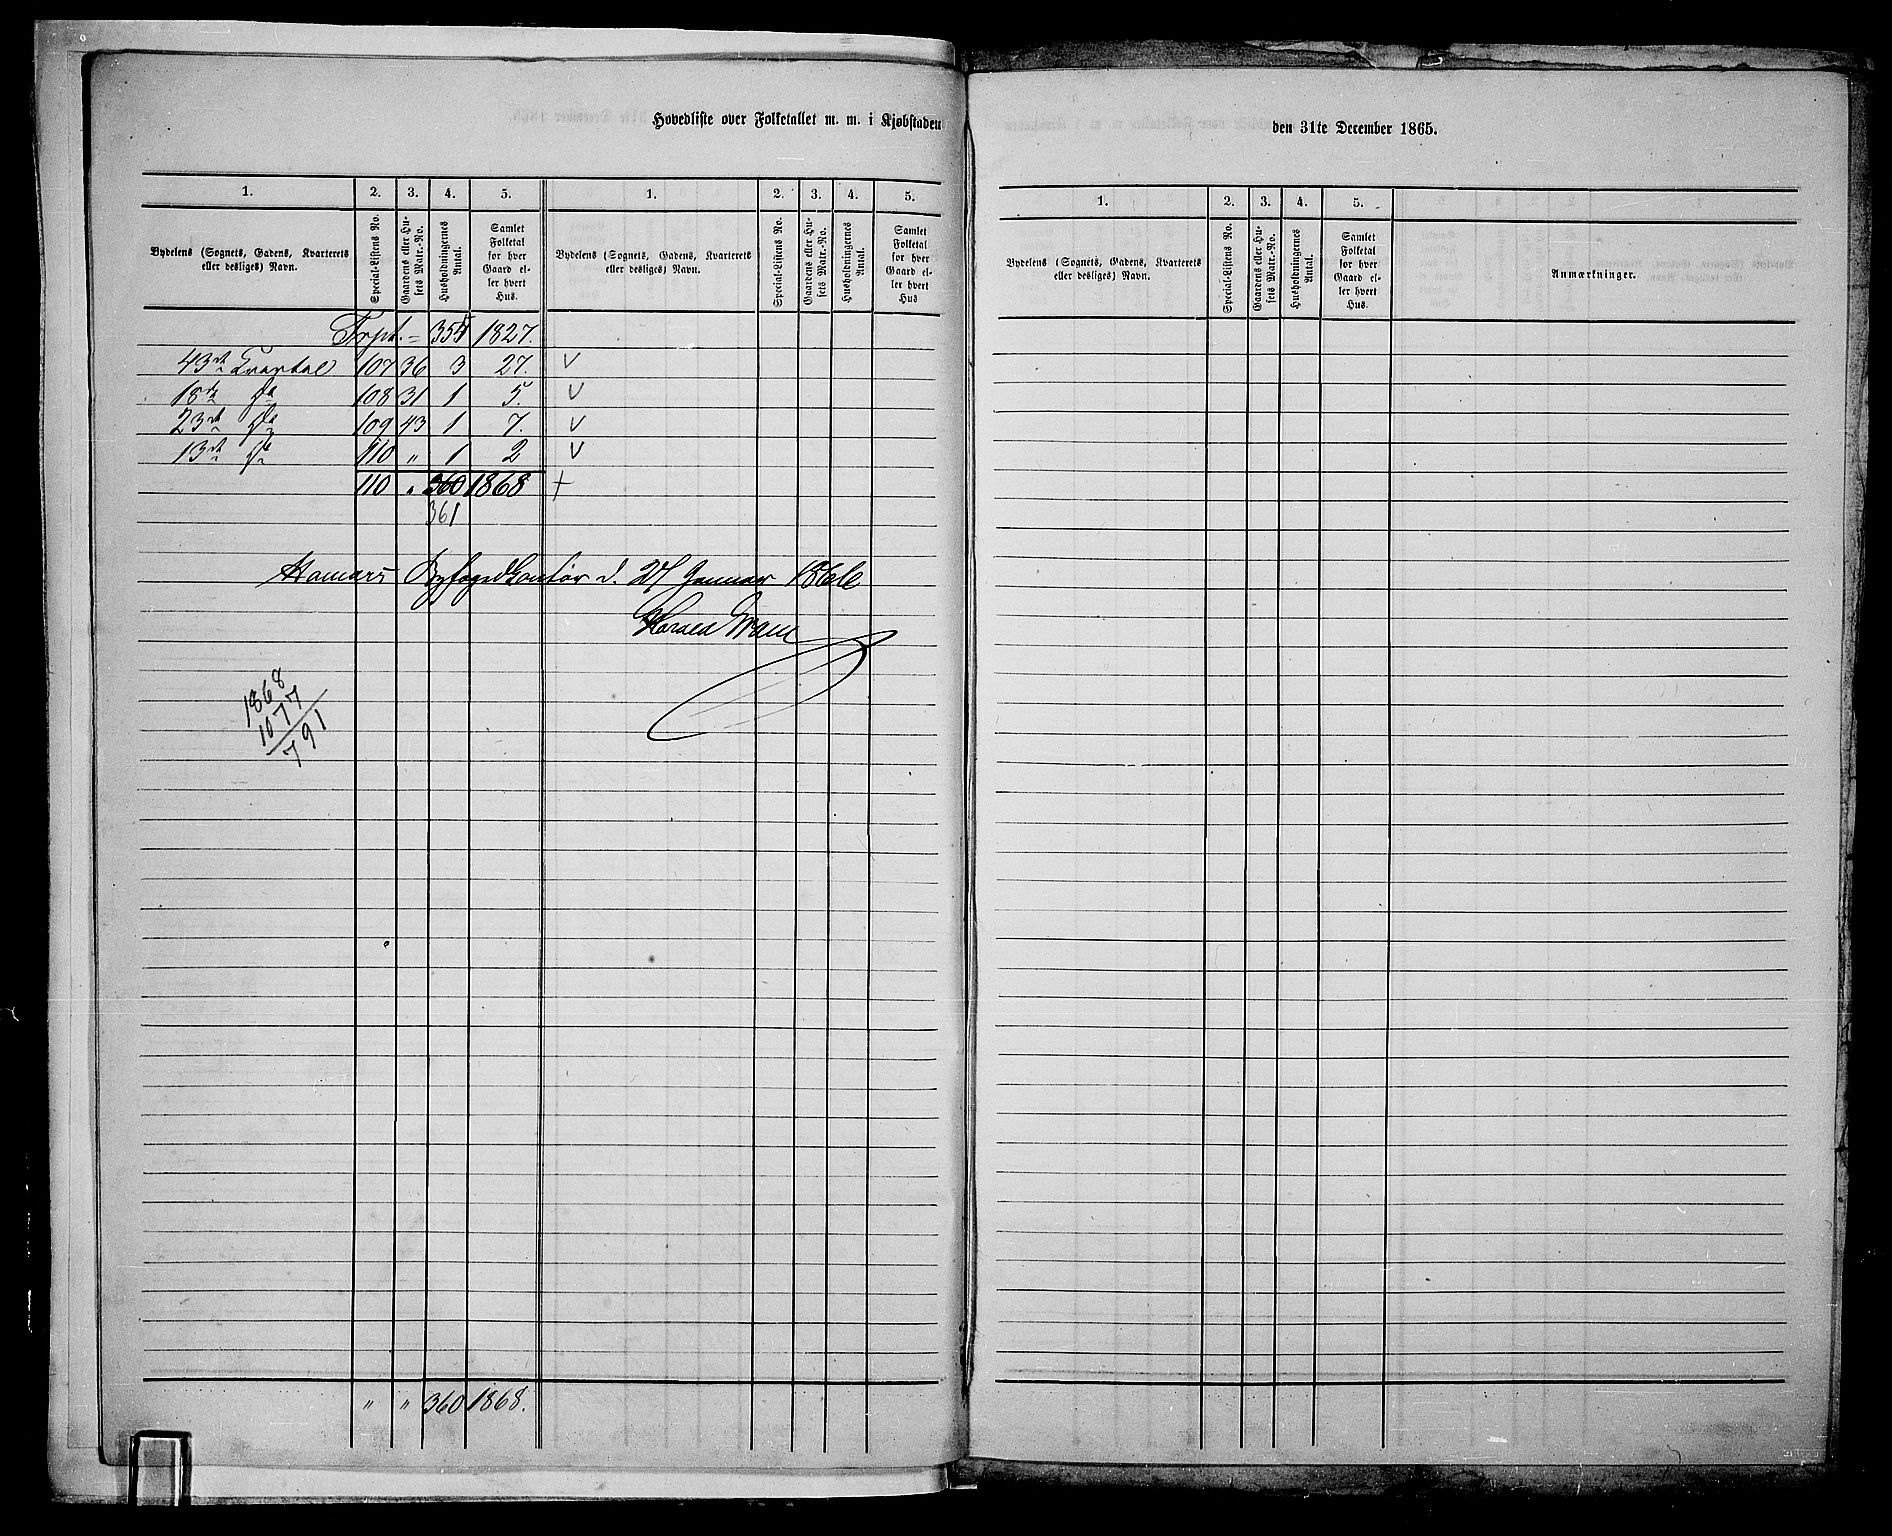 Hovedliste over Folketallet m. m. i Kjøbstaden
1. 2. 3. 4. 5. 1. 2. 3. 4. 5.
Bydelens (Sognets, Gadens, Kvarterets eller desliges) Navn. Special-Listens No. Gaardens eller Husets Matr.-No. Husholdningernes Antal. Samlet Folketal for hver Gaard eller hvert Hus. Bydelens (Sognets, Gadens, Kvarterets eller desliges) Navn. Special-Listens No. Gaardens eller Husets Matr.-No. Husholdningernes Antal. Samlet Folketal for hver Gaard eller hvert Hus
Trpt. = 355 1827.
43de Kvartal 107 36 3 27. V
18de do 108 31 1 5. V
23de do 109 43 1 7. V
13de do 110 " 1 2 V
110 " 360 1868 +
361
Hamars Byfogedkontor d. 27 Januar 1866
Harald
1868
1077
791
" " 360 1868.
den 31te December 1865.
1. 2. 3. 4. 5.
Bydelens (Sognets, Gadens, Kvarterets eller desliges) Navn. Special-Listens No. Gaardens eller Husets Matr.-No. Husholdningernes Antal. Samlet Folketal for hver Gaard eller hvert Hus. Anmærkninger.